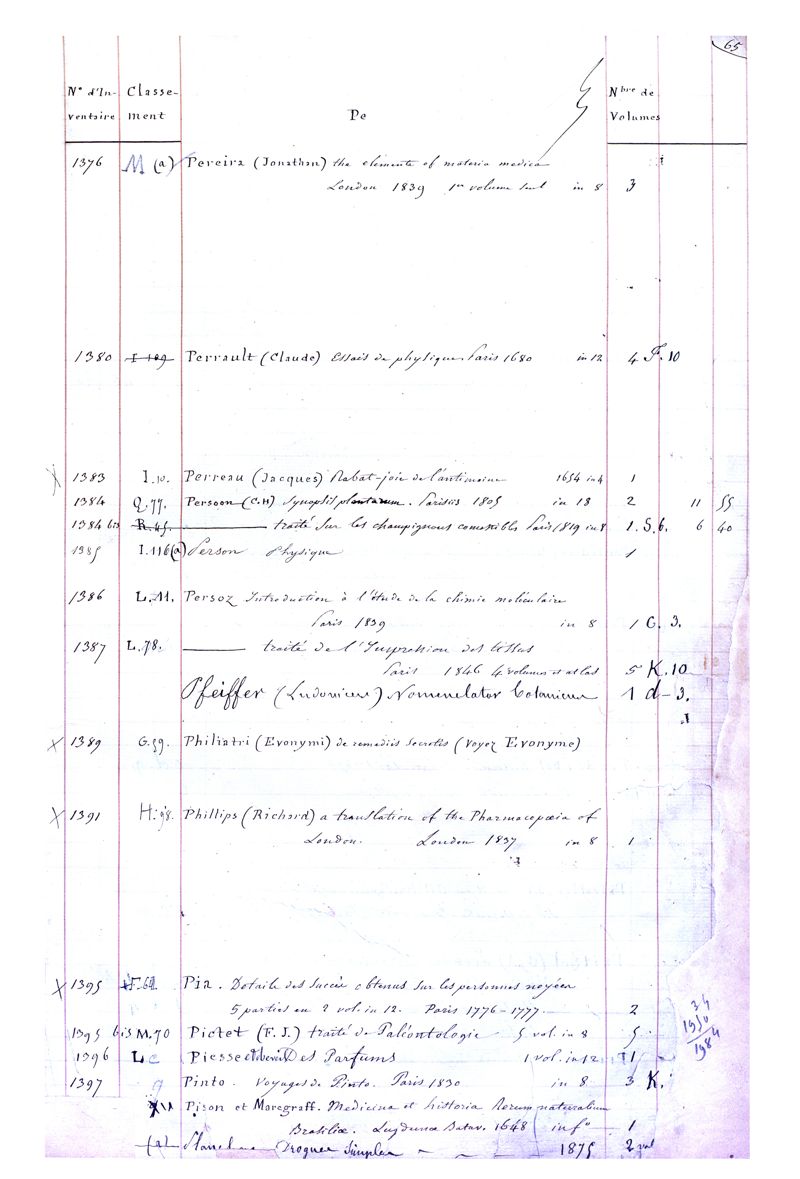 65
N° d'In- Classe- Nbre de
ventaire ment Pe Volumes
1376 M (a) Pereira (Jonathan) the elements of materia medica
London 1839 1er volume seul in 8 3
1380 I 109 Perrault (Claude) Essais de physique. Paris 1680 in 12 4 F. 10
X 1383 I. 10. Perreau (Jacques) Rabat-joie de l'antimoine 1654 in 4 1
1384 Q. 77. Persoon (C.H) Synopsis plantarum. Parisiis 1805 in 18 2 11 55
1384 bis R. 45. ——— traité sur les champignons comestibles Paris 1819 in 8 1. S. 6. 6 40
1385 I. 116 (a) Person Physique 1
1386 L. 11. Persoz Introduction à l'étude de la chimie moléculaire
Paris 1839 in 8 1 G. 3.
1387 L. 78. ——— traité de l'Impression des tissus
Paris 1846 4 volumes et atlas 5 K. 10
Pfeiffer (Ludovicus) Nomenclator botanicus 1 d-3.
X 1389 G. 59. Philiatri (Evonymi) de remediis secretis (voyez Evonyme)
X 1391 H. 98. Phillips (Richard) a translation of the Pharmacopœia of
London. London 1837 in 8 1
X 1395 F. 69. Pia. Details des succès obtenus sur les personnes noyées
5 parties en 2 vol. in 12. Paris 1776-1777. 2
1395 bis M. 70 Pictet (F. J.) traité de Paléontologie 5 vol. in 8 5
1396 L Piesse des Parfums 1 vol. in 12 1
1397 Pinto. Voyages de Pinto. Paris 1830 in 8 3 K.
Pison et Maregraff. Medicina et historia Rerum naturalium
Brasiliæ. Lugdunæ Batav. 1648 in f° 1
(a) Planchon Drogues Simples 1875 2 vol
34
1950
1984